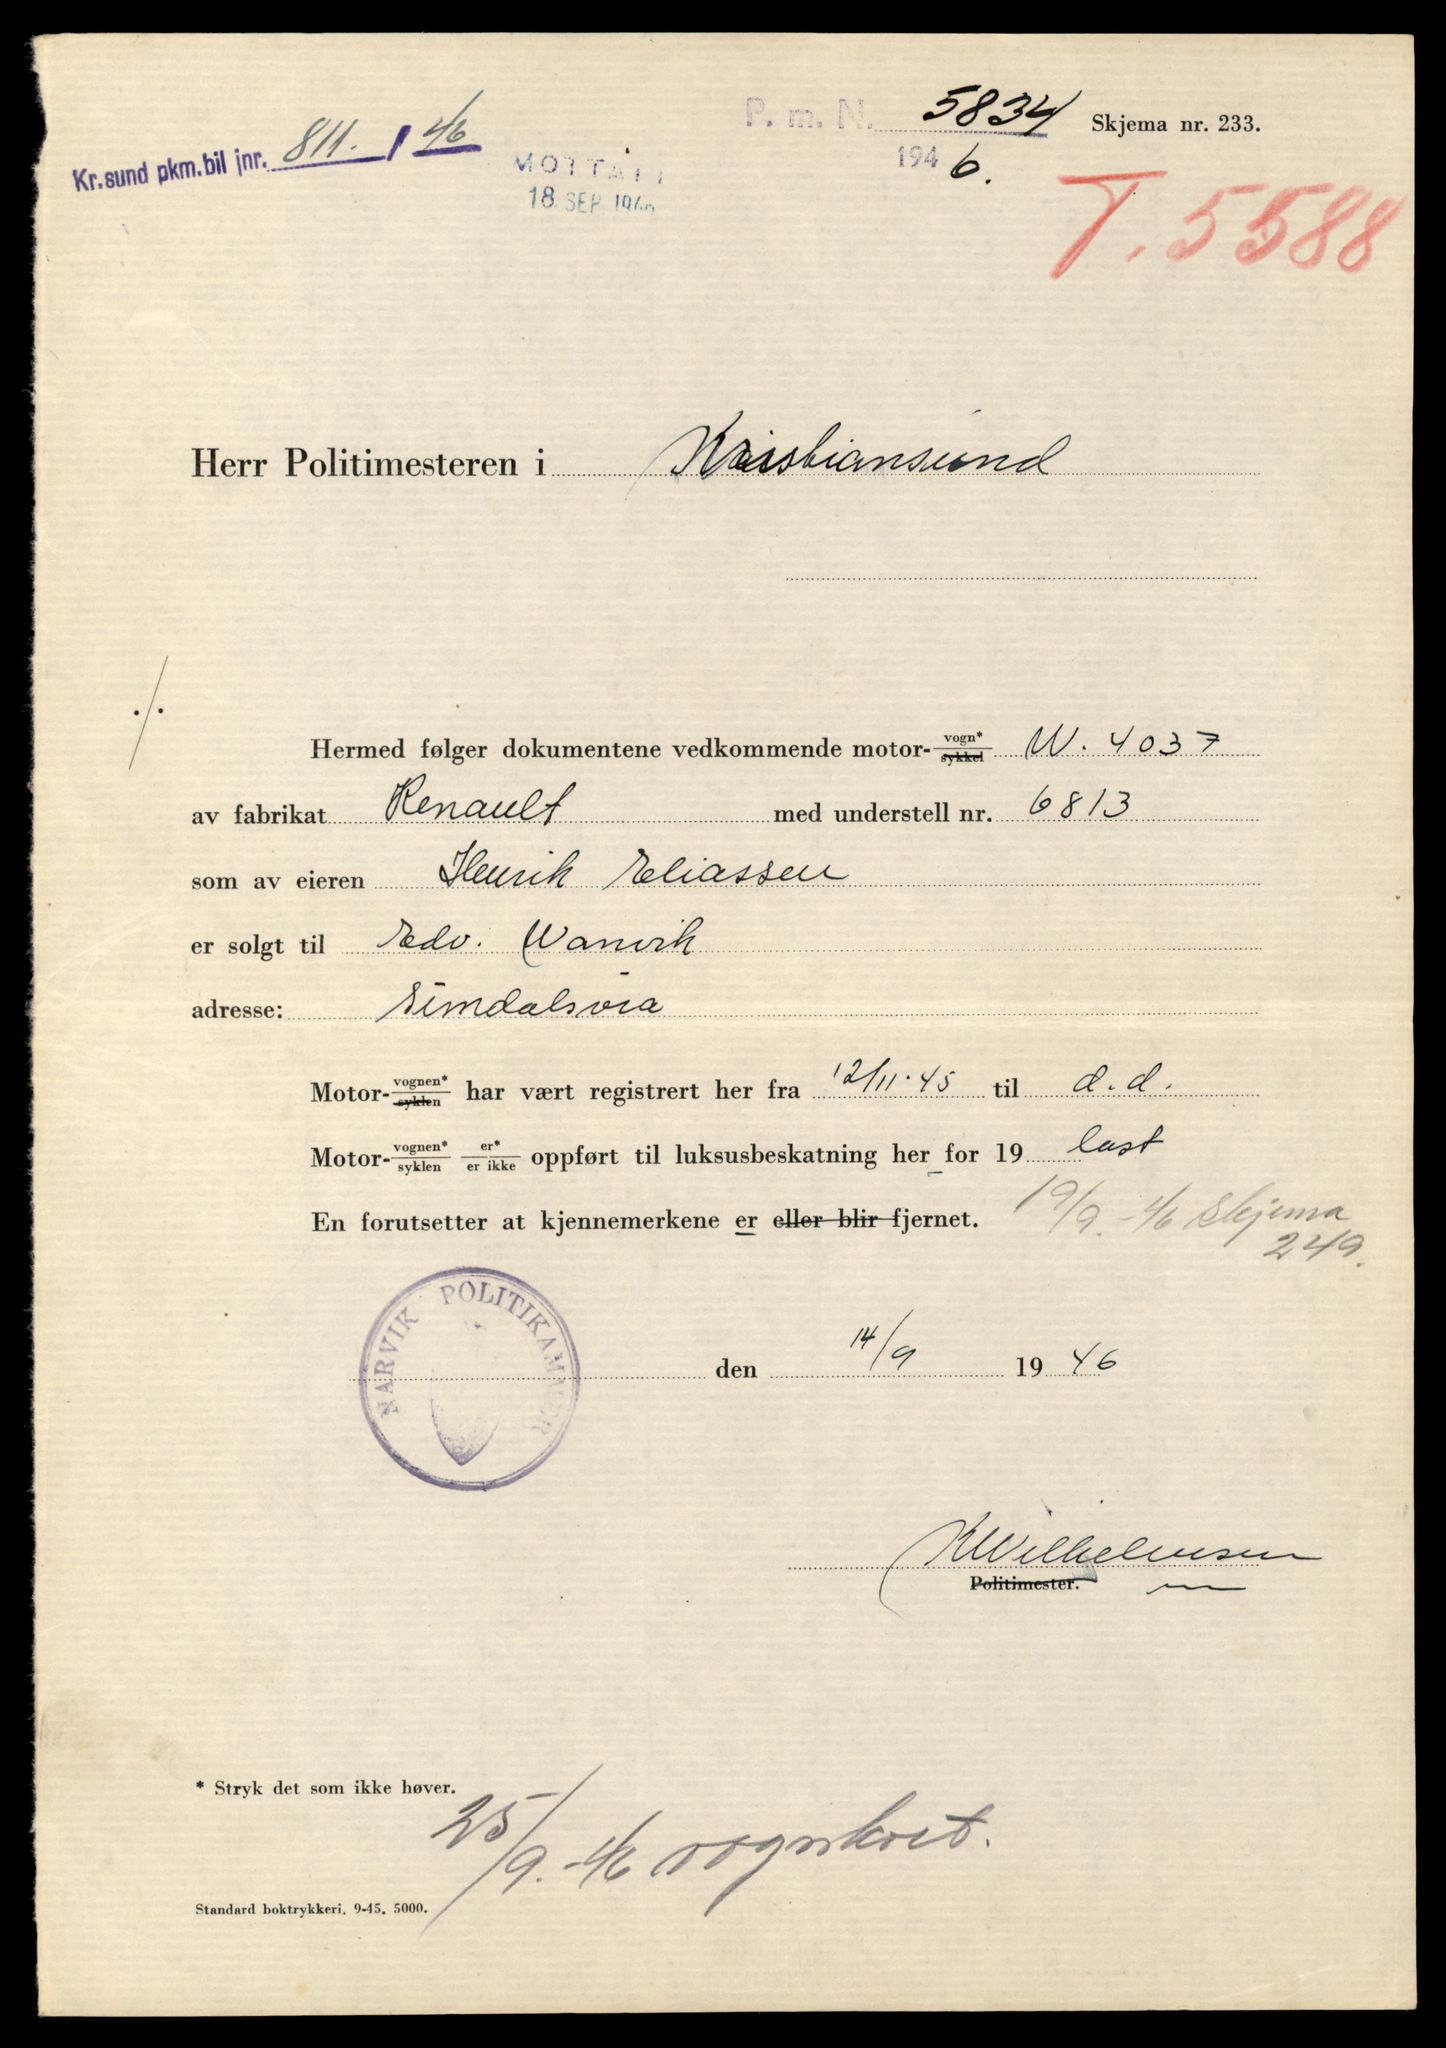 P. m. N. 5834 Skjema nr. 233.
Kr.sund pkm.bil jnr. 811. / 46
MOTTATT
194 6.
18. SEP. 1946
T. 5588
Herr Politimesteren i Kristiansund
./.
Hermed følger dokumentene vedkommende motor- vogn* sykkel W. 4037
av fabrikat Renault med understell nr. 6813
som av eieren Henrik Eliassen
er solgt til Edv. Wanvik
adresse: Simdalsvåg
Motor- vognen* syklen har vært registrert her fra 12/11.45 til d.d.
Motor- vognen* syklen er* er ikke oppført til luksusbeskatning her for 19 last
En forutsetter at kjennemerkene er eller blir fjernet.
19/9.-46 Skjema
249.
NARVIK POLITIKAMMER
den 14/9 1946
KWilhelmsen
Politimester.
* Stryk det som ikke høver.
25/9.-46 vognkort.
Standard boktrykkeri. 9-45. 5000.